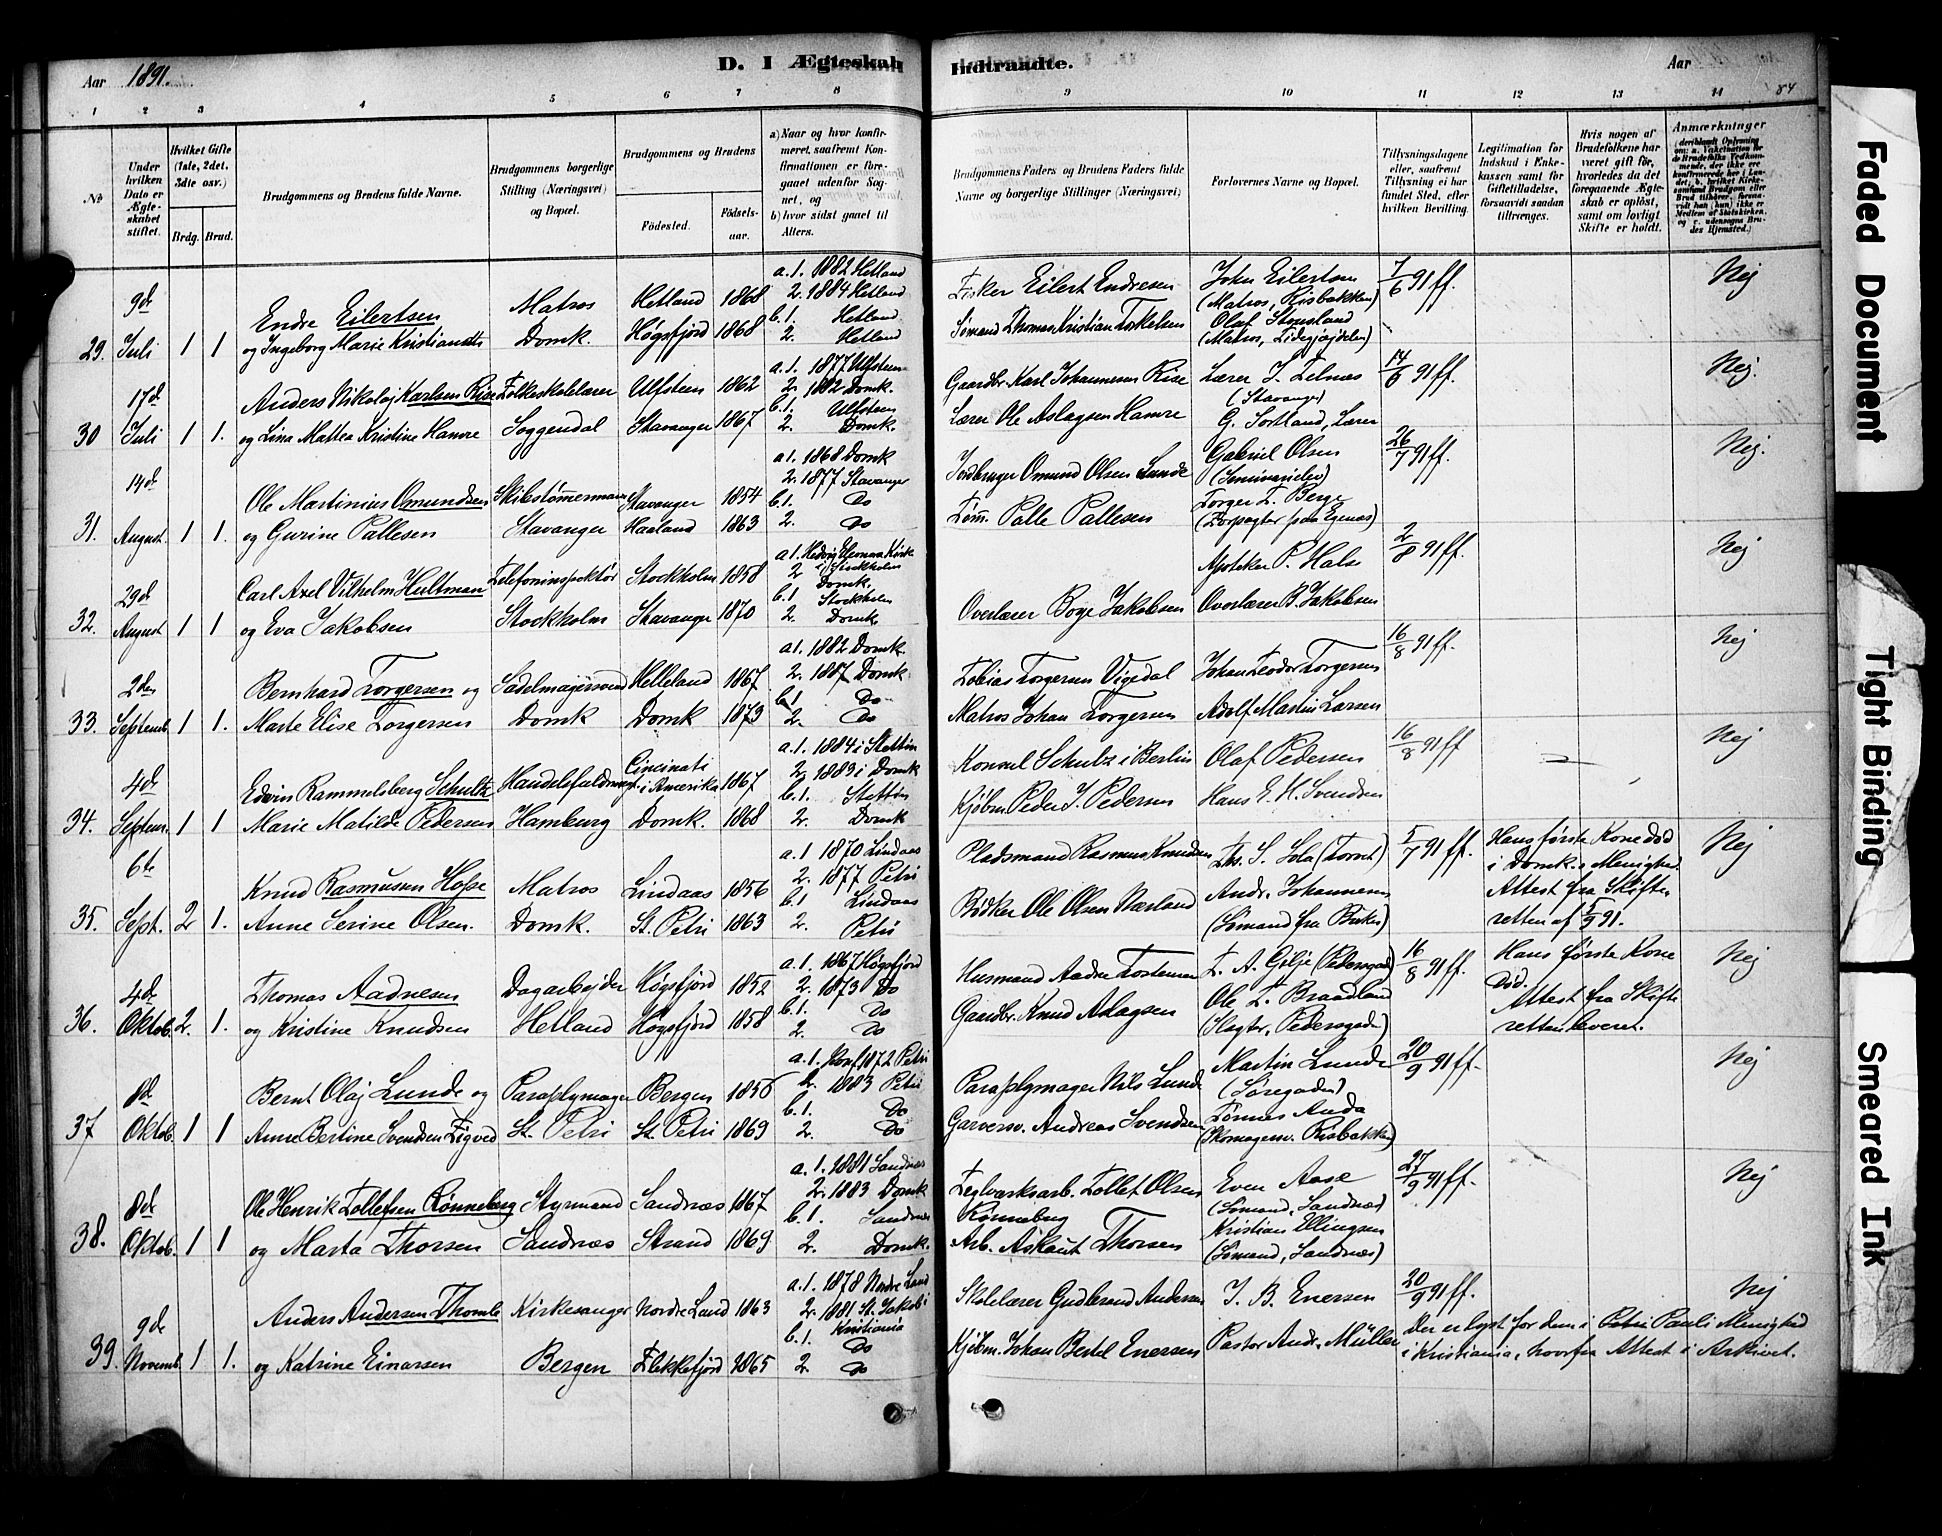 Aar 1891.
D. I Ægteskab Indtraadte.
Aar
84
1 2 3 4 5 6 7 8 9 10 11 12 13 14
No
Under hvilken Dato er Ægteskabet stiftet.
Hvilket Gifte (1ste, 2det, 3die osv.)
Brdg. Brud.
Brudgommens og Brudens fulde Navne.
Brudgommens borgerlige Stilling (Næringsvei) og Bopæl.
Brudgommens og Brudens
Fødested.
Fødselsaar.
a) Naar og hvor konfirmeret, saafremt Konfirmationen er foregaaet udenfor Sognet, og
b) hvor sidst gaaet til Alters.
Brudgommens Faders og Brudens Faders fulde Navne og borgerlige Stillinger (Næringsvei)
Forlovernes Navne og Bopæl.
Tillysningsdagene eller, saafremt Tillysning ei har fundet Sted, efter hvilken Bevilling.
Legitimation for Indskud i Enkekassen samt for Giftetilladelse, forsaavidt saadan tiltrænges.
Hvis nogen af Brudefolkene har været gift før, hvorledes da det foregaaende Ægteskab er opløst, samt om lovligt Skifte er holdt.
Anmærkninger
29. 9d Juli 1 1
Endre Eilertsen
og Ingeborg Marie Kristiansdtr
Matros
Domk.
Hetland 1868
Høgsfjord 1868
a. 1. 1882 Hetland
2. 1884 Hetland
b. 1. Hetland
2. Hetland
Fisker Eilert Endresen
Sømand Thomas Kristian Torkelsen
John Eilertsen
(Matros, Risbakken)
Olaf Stensland
7/6 91 ff.
Nej
30 17d Juli 1 1.
Anders Nikolaj Karlsen Rise
og Lina Mattea Kristine Hamre
Folkeskolelærer
Soggendal
Ulfsteen 1862
Stavanger 1867
a. 1. 1877 Ulfsteen
2. 1882 Domk.
b. 1. Ulfsteen
2. Domk.
Gaardbr. Karl Johannesen Rise
Lærer Ole Aslagsen Hamre
Lærer T. Telnæs
(Stavanger)
G. Sortland, Lærer
14/6 91 ff.
Nej.
31. 14d August 1 1.
Ole Martinius Omundsen
og Gurine Pallesen
Skibstømmermand
Stavanger
Stavanger 1854
Haaland 1863
a 1. 1868 Domk
2. 1877 Stavanger
b. 1. Do
2. Do
Jordbruger Omund Olsen Lunde
Tøm. Palle Pallesen
Gabriel Olsen
Torger T. Berge
(Forpagter paa Egenæs)
26/7 91 ff.
Nej.
32. 29d August 1 1
Carl Axel Vilhelm Hultman
og Eva Jakobsen
Telefoninspektør
Stockholm
Stockholm 1858
Stavanger 1870
a 1. Hedvig Eleonora Kirke i Stockholm
2. Domk.
b. 1 Stockholm
2. Domk.
Overlærer Børge Jakobsen
Apotheker P. Halse
Overlærer B. Jakobsen
2/8 91 ff.
Nej
33. 2den Septemb. 1 1.
Bernhard Torgersen og
Marte Elise Torgersen
Sadelmagersvend
Domk
Helleland 1867
Domk 1873
a 1. 1882 Domk.
2. 1887 Domk.
b. 1 Do
2. Do
Tobias Torgersen Vigedal
Matros Johan Torgersen
Johan Teodor Torgersen
Adolf Martin Larsen
16/8 91 ff.
Nej
34. 4d Septem. 1 1
Edvin Rammelsberg Schultz
Marie Matilde Pedersen
Handelsfuldmægt.
Hamburg
Cincinati i Amerika 1867
Domk. 1868
a. 1. 1884 i Stettin
2. 1883 i Domk
b. 1. Stettin
2. Domk
Konsul Schultz i Berlin
Kjøbm. Peder J. Pedersen
Olaf Pedersen
Hans E. H. Svendsen
16/8 91 ff
Nej
35. 6te Sept. 2 1.
Knud Rasmussen Hope
Anne Serine Olsen.
Matros
Domk.
Lindaas 1856
St. Petri 1863
a. 1 1870 Lindaas
2. 1877 Petri
b. 1 Lindaas
2. Petri
Pladsmand Rasmus Knudsen
Bødker Ole Olsen Nærland
Ths. S. Sola (Torvet)
Andr. Johannesen
5/7 91 ff.
Hans første Kone død
i Domk. Menighed.
Attest fra Skifte-
retten af 5/9 91.
Nej
36. 4de Oktob. 2. 1.
Thomas Aadnesen
og Kristine Knudsen
Dagarbejder
Hetland
Høgsfjord 1852
Høgsfjord 1858
a. 1. 1867 Høgsfjord
2. 1873 Do
b. 1. Do
2. Do
Husmand Aadne Torstensen
Gaardbr. Knud Aslagsen
T. A. Gilje (Pedersgad.)
Ole T. Braadland
(Slagter, Pedersgaden)
16/8 91 ff.
Hans første Kone
Død.
Attest fra Skifte
retten leveret.
Nej
37 8d Oktob. 1 1
Bernt Olaj Lunde og
Anne Bertine Svendsen Tigved
Paraplymager
St. Petri
Bergen 1856
St. Petri 1869
a. 1. Konf 1872 Petri
2. 1883 Petri
b. 1. Do
2. Do
Paraplymager Nils Lunde
Garversv. Andreas Svendsen
Martin Lunde
(Søregaden)
Tønnes Auda
(Skomagersv. Risbakken)
20/9 91 ff.
Nej
38. 8de Oktob. 1 1
Ole Henrik Tollefsen Rønneberg
og Marta Thorsen
Styrmand
Sandnæs
Sandnæs 1867
Strand 1869
a. 1. 1881 Sandnæs
2. 1883 Domk
b. 1. Sandnæs
2. Domk.
Teglværksarb. Tollef Olsen
Rønneberg
Arb. Aslaut Thorsen
Even Aase
(Sømand, Sandnæs)
Kristian Ellingsen
(Sømand, Sandnæs)
27/9 91 ff.
Nej
39. 9de Novemb. 1 1.
Anders Andersen Thomle
og Katrine Einarsen
Kirkesanger
Bergen
Nordre Land 1863
Flekkefjord 1865
a. 1. 1878 Nordre Land
2. 1881 St. Jakob i Kristiania
b. 1. Do
2. Do
Skolelærer Gudbrand Andersen
Kjøbm. Johan Bertel Enersen
J. B. Enersen
Pastor Andr. Müller
20/9 91 ff.
Der er lyst for dem i Petri Pauli Menighed
i Kristiania, hvorfra Attest i Arkivet.
Nej
Faded Document
Tight Binding
Smeared Ink